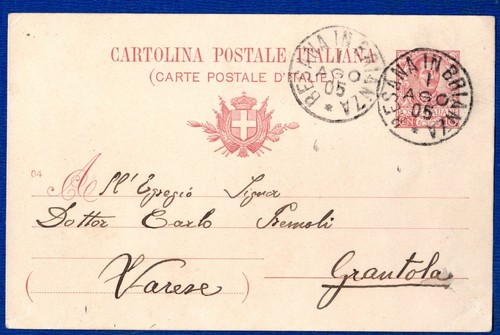 CARTOLINA POSTALE ITALIANA
(CARTE POSTALE D'ITALIE)
BESANA IN BRIANZA
1
AGO
05
BESANA IN BRIANZA
1
AGO
05
04
All'Egregio Signor
Dottor Carlo Premoli
Grantola
(Varese)